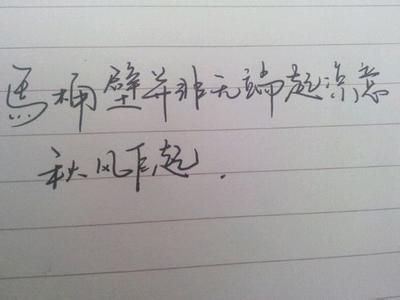 馬桶壁并非无端起凉意
秋风乍起.